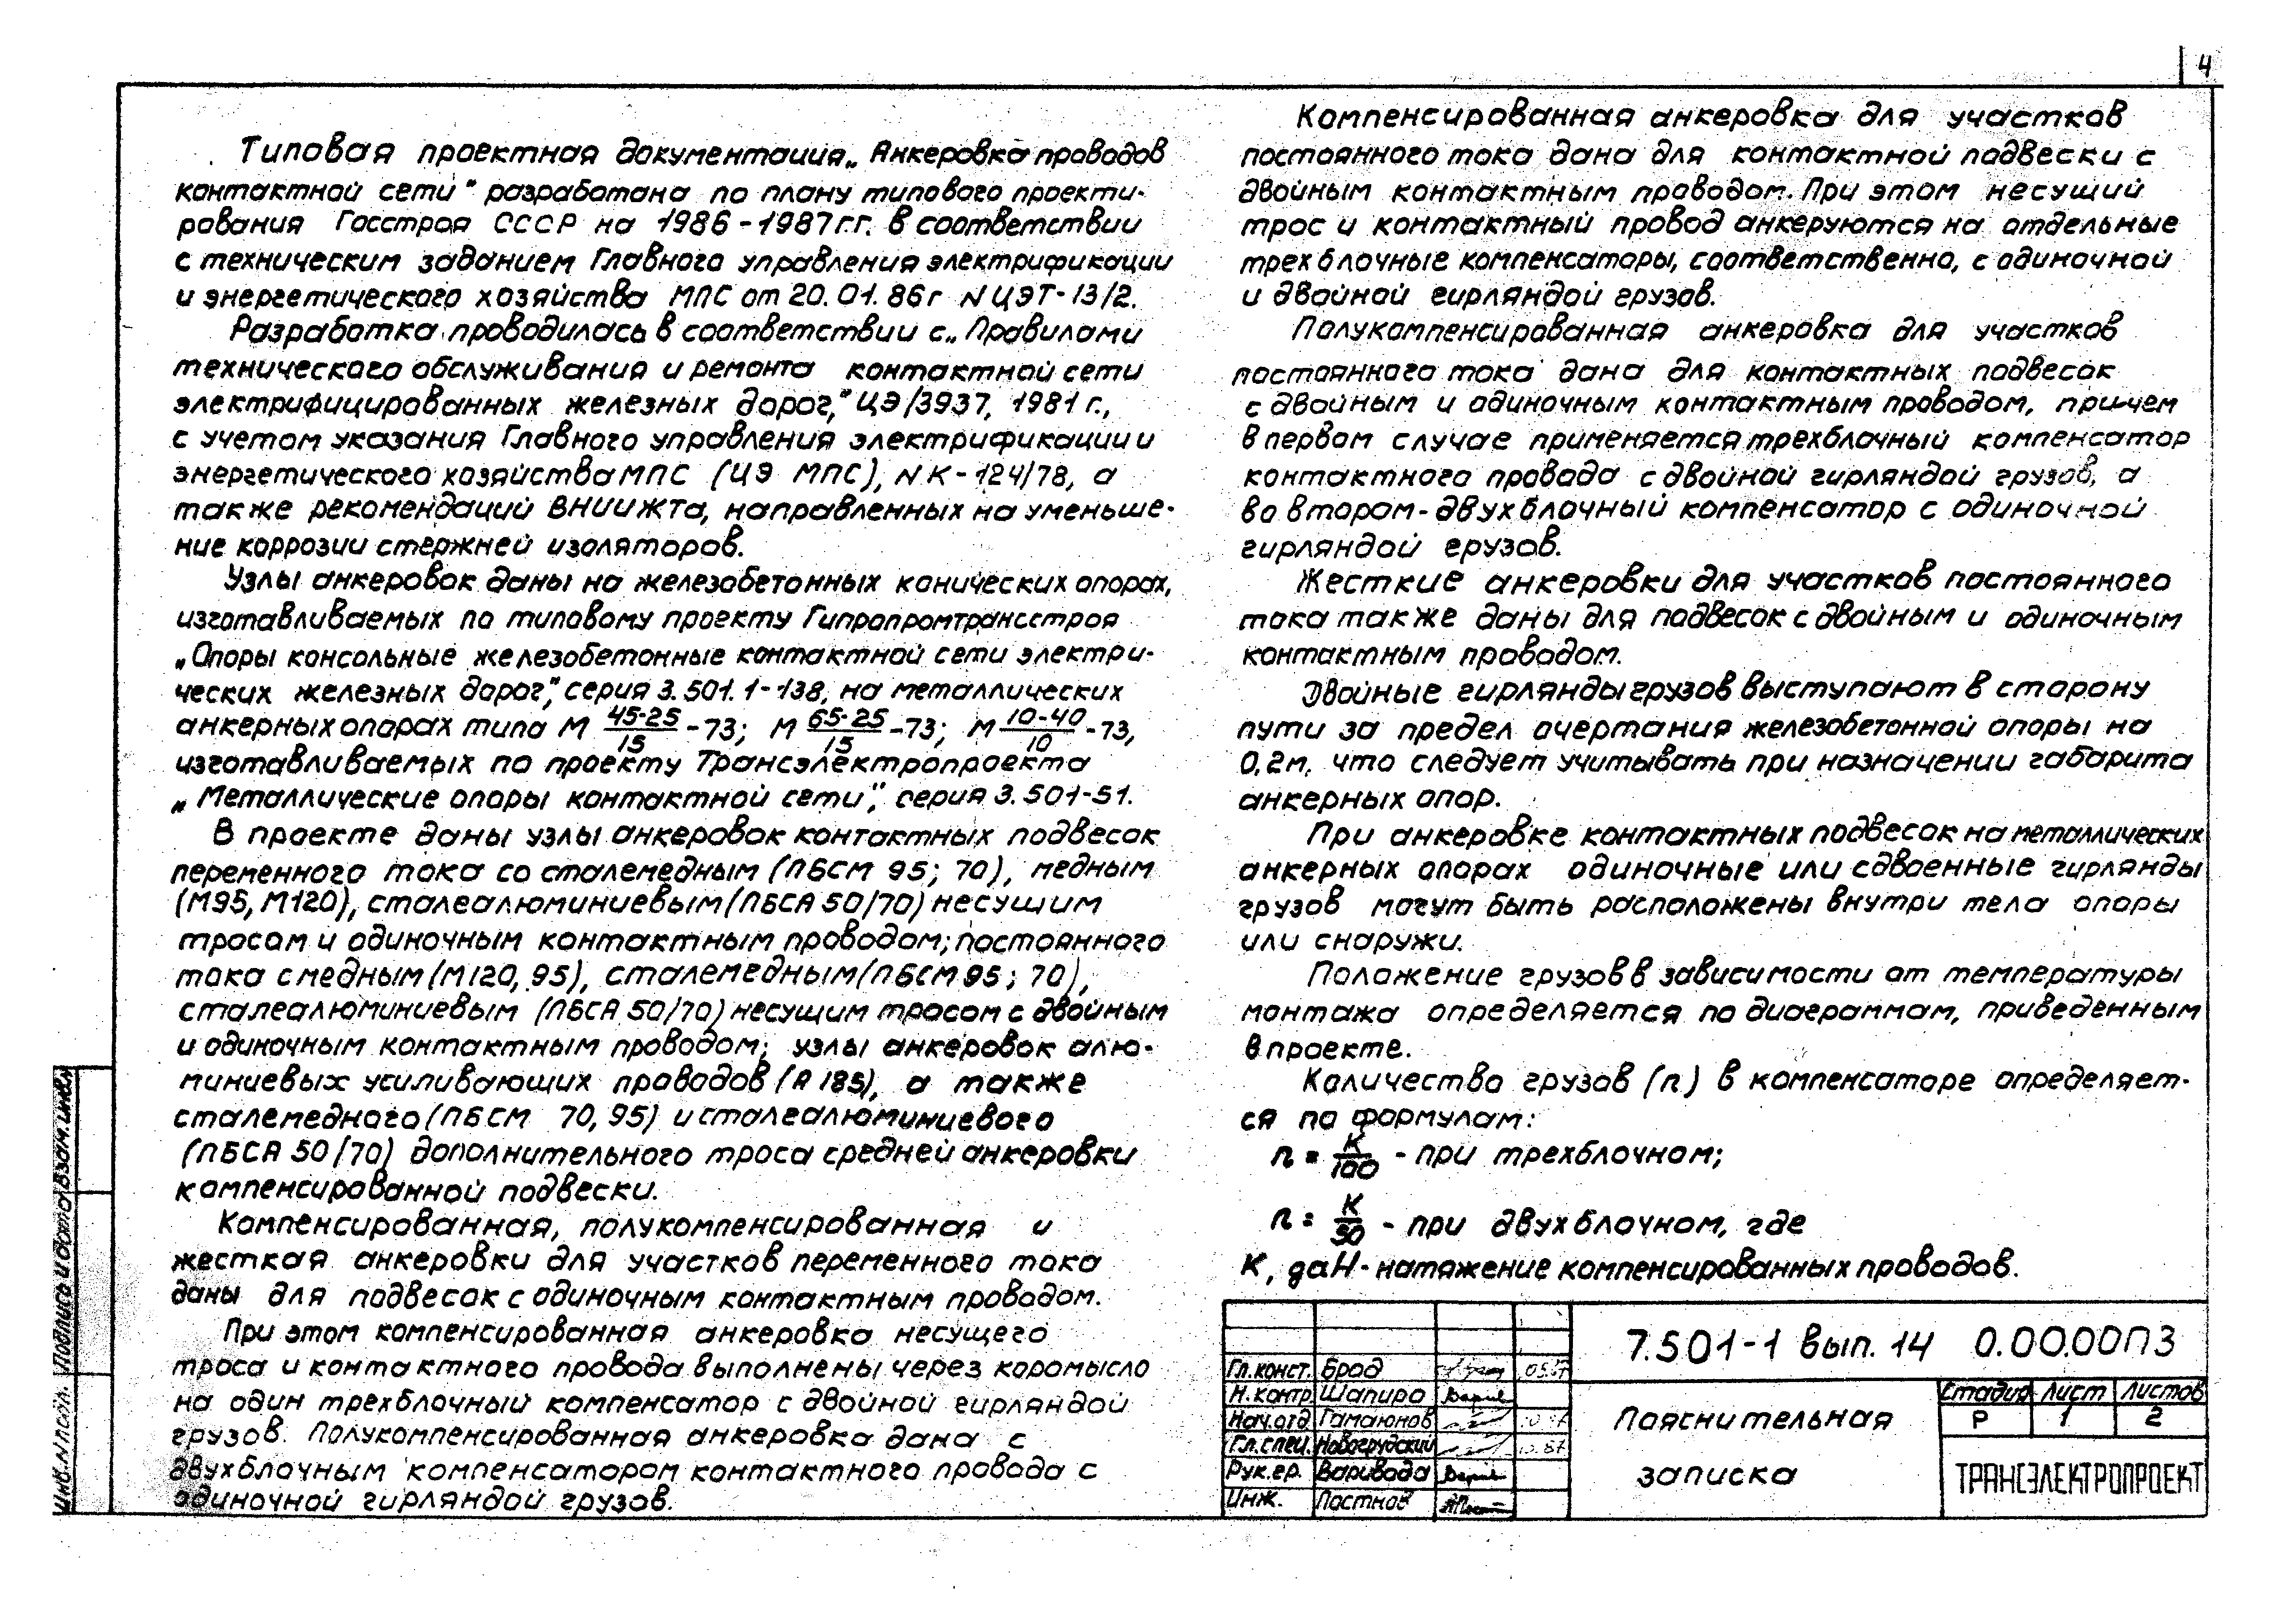 4
Типовая проектная документация „Анкеровка проводов
контактной сети" разработана по плану типового проекти-
рования Госстроя СССР на 1986-1987 г.г. в соответствии
с техническим заданием Главного управления электрификации
и энергетического хозяйства МПС от 20.01.86г N ЦЭТ-13/2.
Разработка проводилась в соответствии с „Правилами
технического обслуживания и ремонта контактной сети
электрифицированных железных дорог," ЦЭ/3937, 1981 г.,
с учетом указания Главного управления электрификации и
энергетического хозяйства МПС (ЦЭ МПС), N К-124/78, а
также рекомендаций ВНИИЖТа, направленных на уменьше-
ние коррозии стержней изоляторов.
Узлы анкеровок даны на железобетонных конических опорах,
изготавливаемых по типовому проекту Гипропромтрансстроя
„Опоры консольные железобетонные контактной сети электри-
ческих железных дорог," серия 3.501.1-138, на металлических
анкерных опорах типа М 45-25/15 -73; М 65-25/15 -73; М 10-40/10 -73,
изготавливаемых по проекту Трансэлектропроекта
„Металлические опоры контактной сети", серия 3.501-51.
В проекте даны узлы анкеровок контактных подвесок
переменного тока со сталемедным (ПБСМ 95; 70), медным
(М95, М120), сталеалюминиевым (ПБСА 50/70) несущим
тросом и одиночным контактным проводом; постоянного
тока с медным (М120, 95), сталемедным (ПБСМ 95; 70),
сталеалюминиевым (ПБСА 50/70) несущим тросом с двойным
и одиночным контактным проводом; узлы анкеровок алю-
миниевых усиливающих проводов (А 185), а также
сталемедного (ПБСМ 70, 95) и сталеалюминиевого
(ПБСА 50/70) дополнительного троса средней анкеровки
компенсированной подвески.
Компенсированная, полукомпенсированная и
жесткая анкеровки для участков переменного тока
даны для подвесок с одиночным контактным проводом.
При этом компенсированная анкеровка несущего
троса и контактного провода выполнены через коромысло
на один трехблочный компенсатор с двойной гирляндой
грузов. Полукомпенсированная анкеровка дана с
двухблочным компенсатором контактного провода с
одиночной гирляндой грузов.
Компенсированная анкеровка для участков
постоянного тока дана для контактной подвески с
двойным контактным проводом. При этом несущий
трос и контактный провод анкеруются на отдельные
трехблочные компенсаторы, соответственно, с одиночной
и двойной гирляндой грузов.
Полукомпенсированная анкеровка для участков
постоянного тока дана для контактных подвесок
с двойным и одиночным контактным проводом, причем
в первом случае применяется трехблочный компенсатор
контактного провода с двойной гирляндой грузов, а
во втором - двухблочный компенсатор с одиночной
гирляндой грузов.
Жесткие анкеровки для участков постоянного
тока также даны для подвесок с двойным и одиночным
контактным проводом.
Двойные гирлянды грузов выступают в сторону
пути за предел очертания железобетонной опоры на
0,2м, что следует учитывать при назначении габарита
анкерных опор.
При анкеровке контактных подвесок на металлических
анкерных опорах одиночные или сдвоенные гирлянды
грузов могут быть расположены внутри тела опоры
или снаружи.
Положение грузов в зависимости от температуры
монтажа определяется по диаграммам, приведенным
в проекте.
Количество грузов (n) в компенсаторе определяет-
ся по формулам:
n = К/100 - при трехблочном;
n = К/50 - при двухблочном, где
К, даН - натяжение компенсированных проводов.
7.501-1 вып. 14 0.00.00ПЗ
Гл.конст. Брод
Н.контр Шапиро
Нач.отд Гамаюнов
Гл.спец. Новогрудский
Рук.гр. Варивода
Инж. Постнов
Пояснительная
записка
Стадия Лист Листов
Р 1 2
ТРАНСЭЛЕКТРОПРОЕКТ
Инв. N подл. Подпись и дата Взам. инв. N